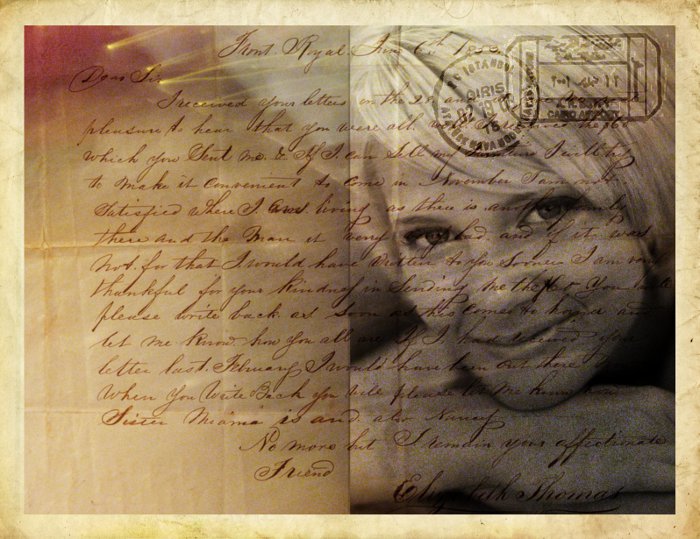 Front Royal June 6th 18
Dear Sir
I received your letters on the
pleasure to hear that you were all well
which you Sent me & If I can Sell my furniture I will try
to make it convenient to come in November I am not
Satisfied where I am living as there is another family
there and the Man is very bad and if it was
not for that I would have written to you Sooner I am very
thankful for your kindness in Sending me the You will
please write back as Soon as this comes to hand and
let me know how you all are If I had received your
letter last February I would have been out there
When You Write Back you will please let me know how
Sister is and also Nancy
No more but I remain your affectionate
Friend
Elizabeth Thomas
ISTANBUL
GIRIS
CAIRO AIRPORT